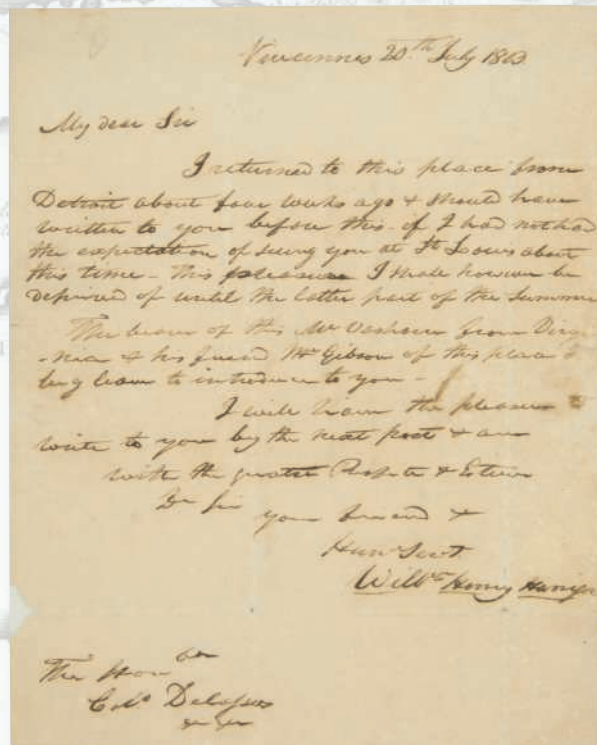 Vincennes 20th. July 1803.
My dear Sir
I returned to this place from
Detroit about four weeks ago & should have
written to you before this - if I had not had
the expectation of seeing you at St Louis about
this time - this pleasure I shall however be
deprived of until the latter part of the summer
The bearer of this Mr from Virgi
-nia & his friend Mr Gibson of this place I
beg leave to introduce to you -
I will have the pleasure to
write to you by the next post & am
with the greatest Respect & Esteem
Dr Sir
your friend &
Hum Servt
Willm Henry Harrison
The Honble
Colo Delassus